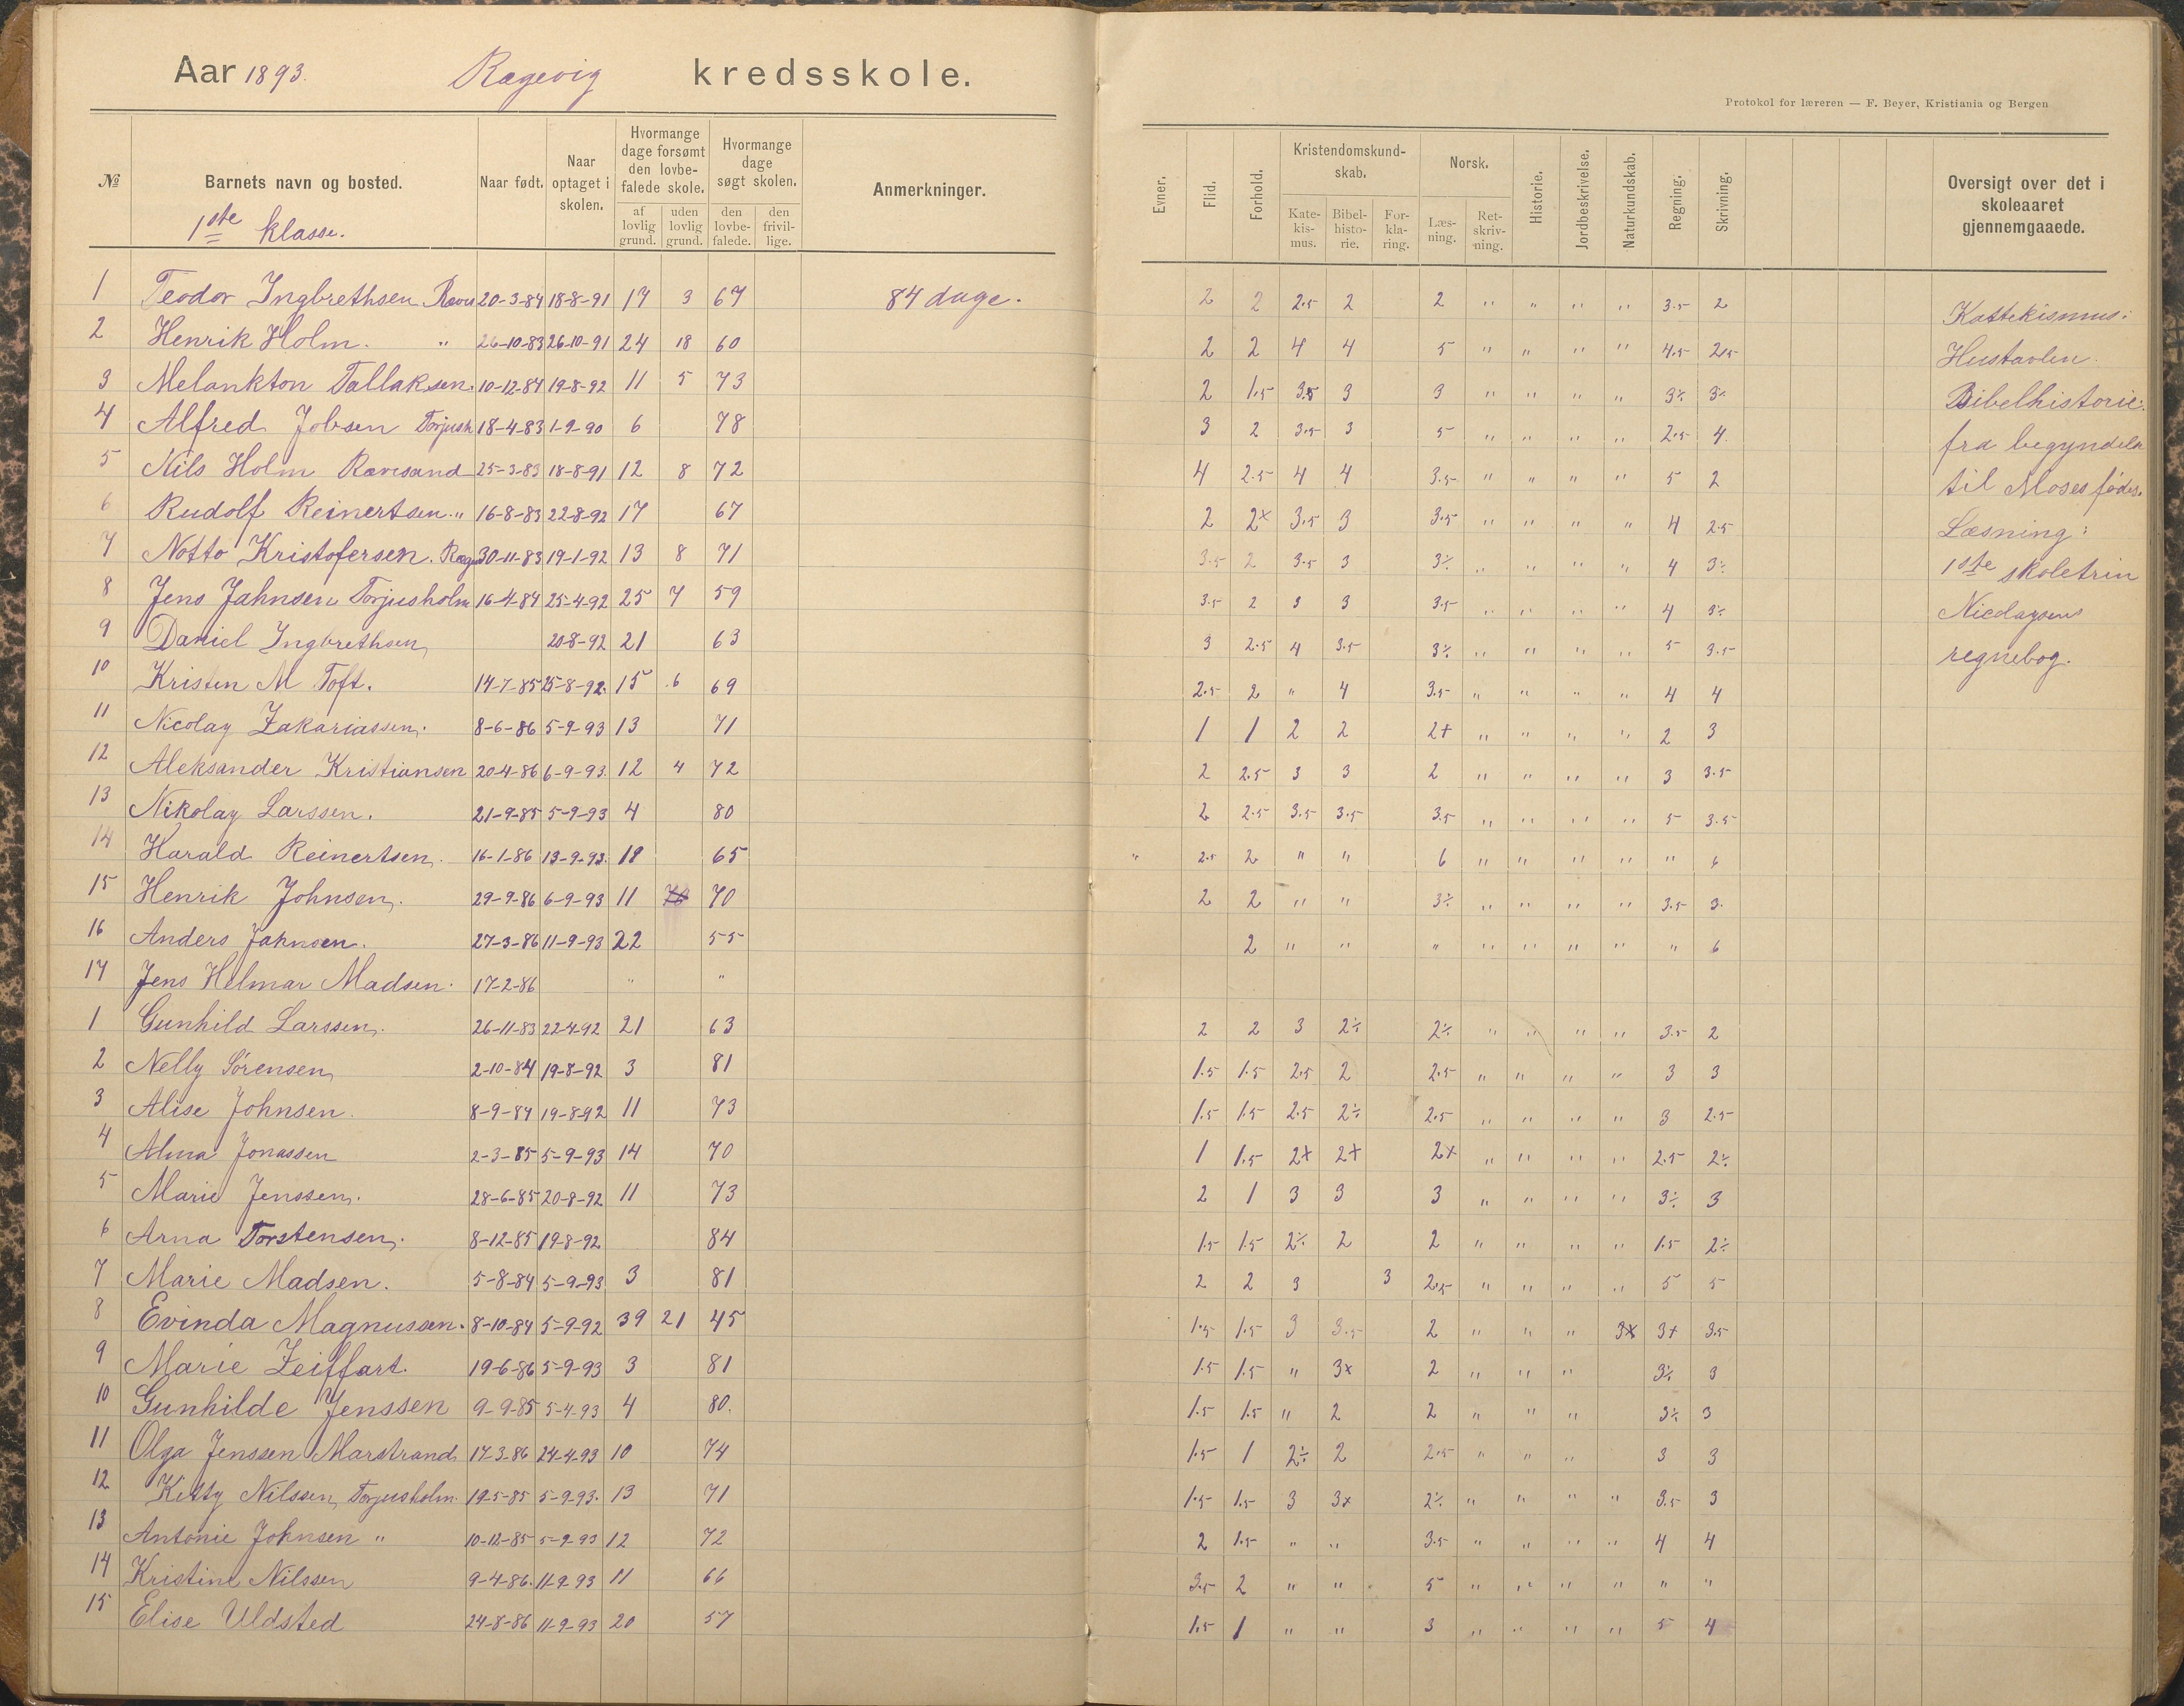 Aar 1893. Ragevig kredsskole.
Protokol for læreren — F. Beyer, Kristiania og Bergen
№ Barnets navn og bosted. Naar født. Naar optaget i skolen. Hvormange dage forsømt den lovbefalede skole. af lovlig grund. uden lovlig grund. Hvormange dage søgt skolen. den lovbefalede. den frivillige. Anmerkninger.
Evner. Flid. Forhold. Kristendomskundskab. Katekismus. Bibelhistorie. Forklaring. Norsk. Læsning. Retskrivning. Historie. Jordbeskrivelse. Naturkundskab. Regning. Skrivning. Oversigt over det i skoleaaret gjennemgaaede.
1ste klasse.
1 Teodor Ingbrethsen 20-3-84 18-8-91 17 3 67 84 dage. 2 2 2.5 2 2 " " " " 3.5 2
Kattekismus:
2 Henrik Holm. " 26-10-83 26-10-91 24 18 60 2 2 4 4 5 " " " " 4.5 2.5
Hustavlen
3 Melankton Tallaksen. 10-12-84 19-8-92 11 5 73 2 1.5 3.5 3 3 " " " " 3÷ 3÷
Bibelhistorie:
4 Alfred Jobsen Torjush 18-4-83 1-9-90 6 78 3 2 3.5 3 5 " " " " 2.5 4.
fra begyndels
5 Nils Holm Rævesand 25-3-83 18-8-91 12 8 72 4 2.5 4 4 3.5 " " " " 5 2
til Moses fødes.
6 Rudolf Reinertsen " 16-8-83 22-8-92 17 67 2 2+ 3.5 3 3.5 " " " " 4 2.5
Læsning:
7 Notto Kristofersen. Rag 30-11-83 19-1-92 13 8 71 3.5 2 3.5 3 3÷ " " " " 4 3÷
1ste skoletrin
8 Jens Jahnsen Torjusholm 16-4-84 25-4-92 25 7 59 3.5 2 3 3 3.5 " " " " 4 3÷
Nicolaysens
9 Daniel Ingbrethsen 20-8-92 21 63 3 2.5 4 3.5 3÷ " " " " 5 3.5
regnebog.
10 Kristen M Toft. 14-7-85 25-8-92. 15 6 69 2.5 2 " 4 3.5 " " " " 4 4
11 Nicolay Zakariassen. 8-6-86 5-9-93 13 71 1 1 2 2 2+ " " " " 2 3
12 Aleksander Kristiansen 20-4-86 6-9-93. 12 4 72 2 2.5 3 3 2 " " " " 3 3.5
13 Nikolay Larssen. 21-9-85 5-9-93 4 80 2 2.5 3.5 3.5 3.5 " " " " 5 3.5
14 Harald Reinertsen. 16-1-86 13-9-93. 19 65 " 2.5 2 " " 6 " " " " " 6
15 Henrik Johnsen. 29-9-86 6-9-93 11 70 2 2 " " 3÷ " " " " 3.5 3.
16 Anders Jahnsen. 27-3-86 11-9-93 22 55 2 " " " " " " " " 6
17 Jens Helmar Madsen. 17-2-86 " "
1 Gunhild Larssen. 26-11-83 22-4-92 21 63 2 2 3 2÷ 2÷ " " " " 3.5 2
2 Nelly Sørensen 2-10-84 19-8-92 3 81 1.5 1.5 2.5 2 2.5 " " " " 3 3
3 Alise Johnsen. 8-9-84 19-8-92 11 73 1.5 1.5 2.5 2÷ 2.5 " " " " 3 2.5
4 Alma Jonassen 2-3-85 5-9-93 14 70 1 1.5 2+ 2+ 2+ " " " " 2.5 2÷
5 Marie Jenssen. 28-6-85 20-8-92 11 73 2 1 3 3 3 " " " " 3÷ 3
6 Arna Torstensen. 8-12-85 19-8-92 84 1.5 1.5 2÷ 2 2 " " " " 1.5 2÷
7 Marie Madsen. 5-8-84 5-9-93 3 81 2 2 3 3 2.5 " " " " 5 5
8 Evinda Magnussen. 8-10-84 5-9-92 39 21 45 1.5 1.5 3 3.5 2 " " " 3+ 3+ 3.5
9 Marie Zeiffart. 19-6-86 5-9-93 3 81 1.5 1.5 " 3+ 2 " " " 3÷ 3
10 Gunhilde Jenssen 9-9-85 5-4-93 4 80. 1.5 1.5 " 2 2 " " " 3÷ 3
11 Olga Jenssen Marstrand 17-3-86 24-4-93 10 74 1.5 1 2÷ 2 2.5 " " " 3 3
12 Ketty Nilssen, Torjusholm. 19-5-85 5-9-93. 13 71 1.5 1.5 3 3+ 2÷ " " " " 3.5 3
13 Antonie Johnsen " 10-12-85 5-9-93 12 72 2 1.5 " " 3.5 " " " " 4 4
14 Kristine Nilssen 9-4-86. 11-9-93 11 66 3.5 2 " " 5 " " " " " "
15 Elise Uldsted 24-8-86 11-9-93 20 57 1.5 1 " " 3 " " " " 5 4